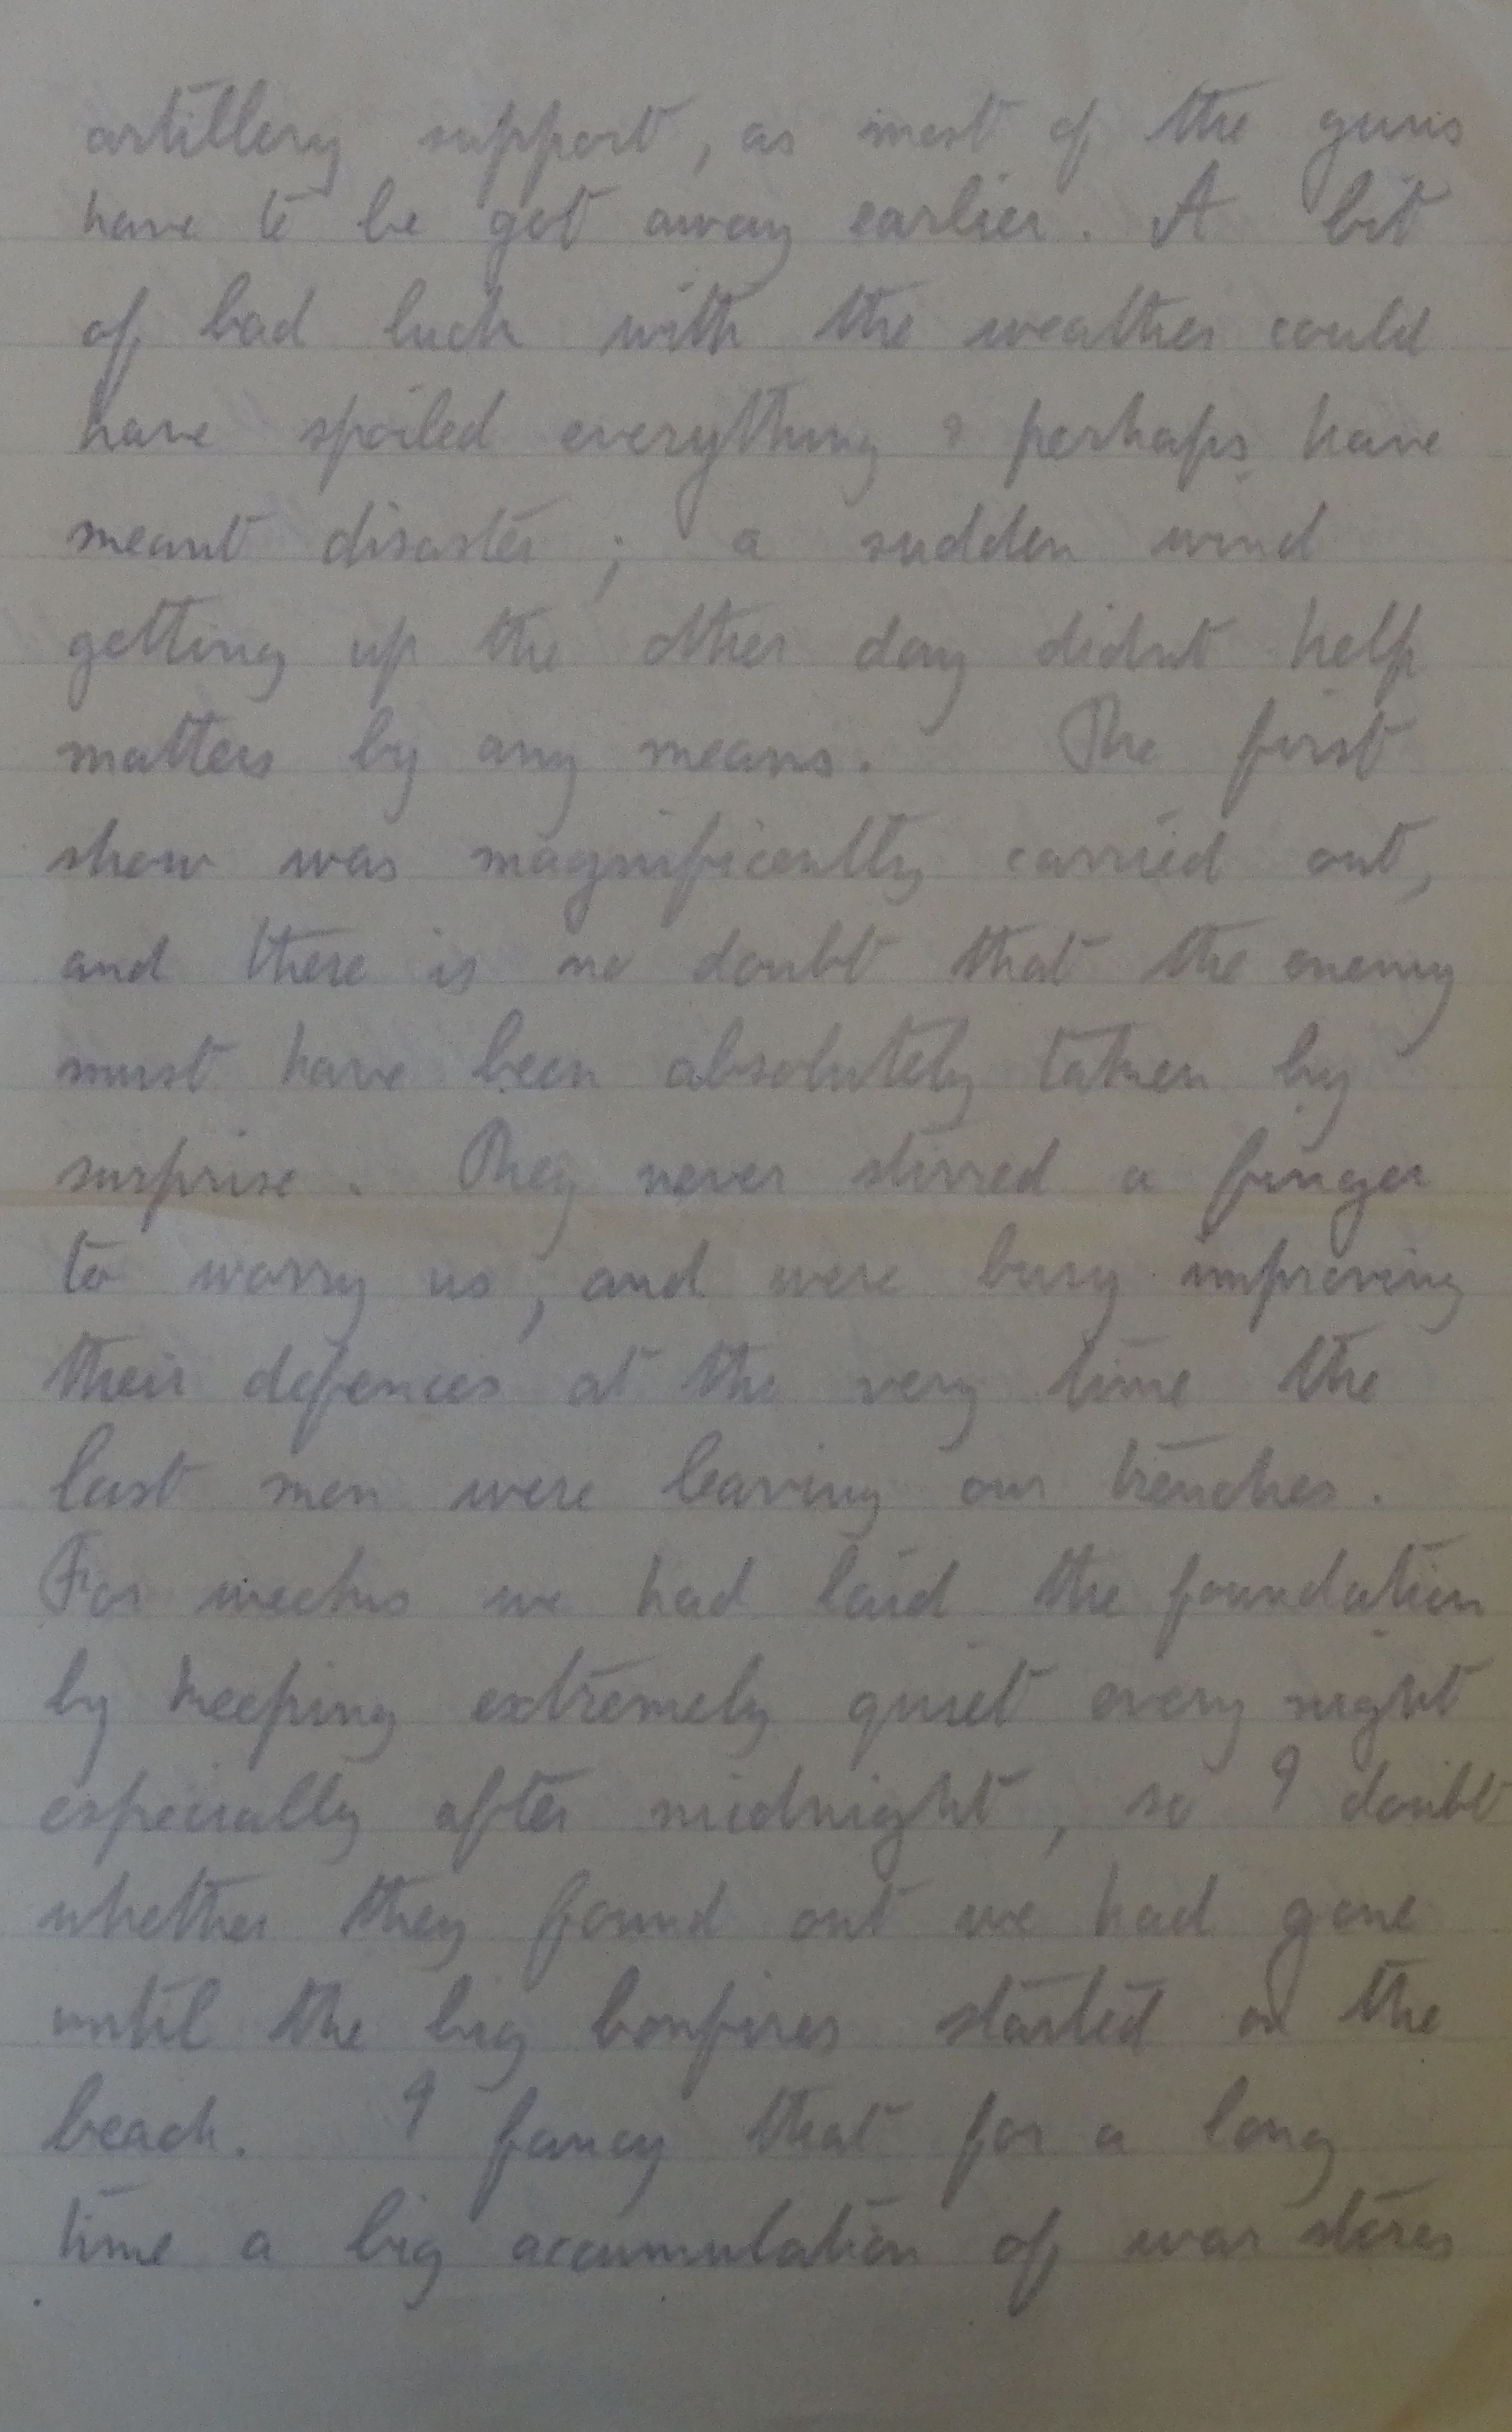 artillery support, as most of the guns
have to be got away earlier. A bit
of bad luck with the weather could
have spoiled everything & perhaps have
meant disaster; a sudden wind
getting up the other day didnt help
matters by any means. The first
show was magnificently carried out,
and there is no doubt that the enemy
must have been absolutely taken by
surprise. They never stirred a finger
to worry us, and were busy improving
their defences at the very time the
last men were leaving our trenches.
For weeks we had laid the foundation
by keeping extremely quiet every night
especially after midnight, so I doubt
whether they found out we had gone
until the big bonfires started on the
beach. I fancy that for a long
time a big accumulation of war stores